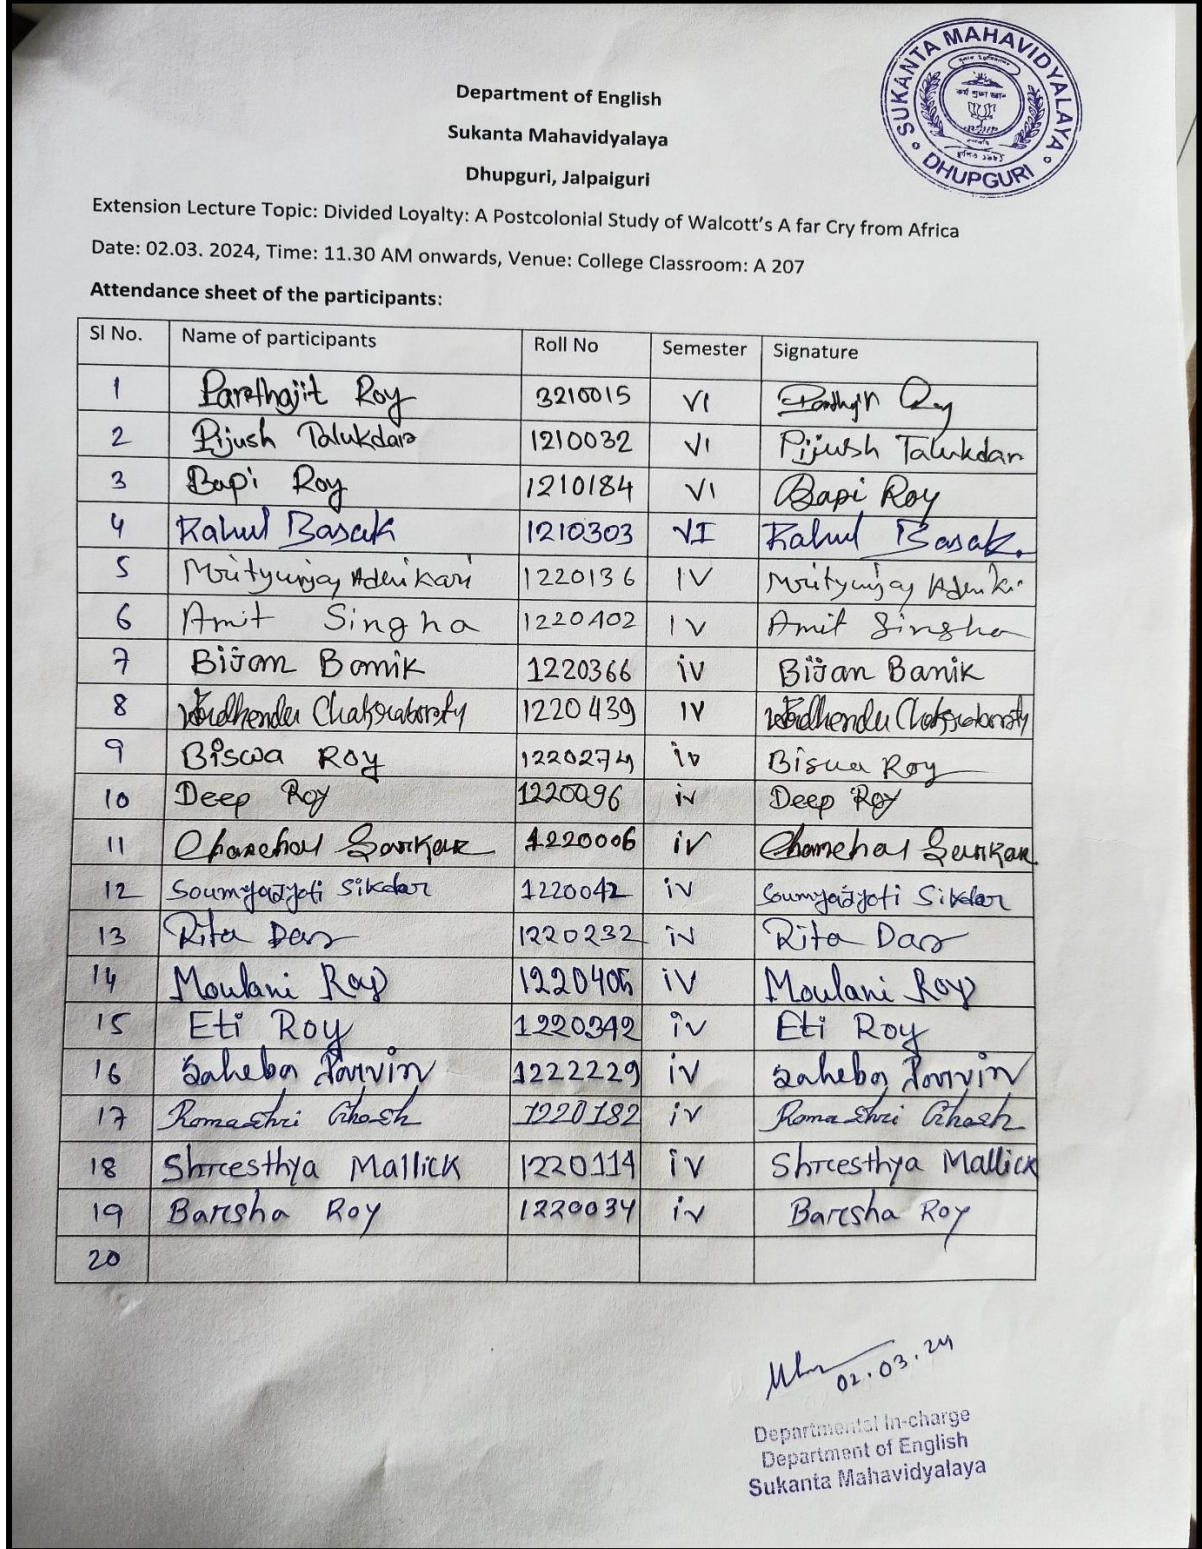 SUKANTA MAHAVIDYALAYA
DHUPGURI
Department of English
Sukanta Mahavidyalaya
Dhupguri, Jalpaiguri
Extension Lecture Topic: Divided Loyalty: A Postcolonial Study of Walcott's A far Cry from Africa
Date: 02.03. 2024, Time: 11.30 AM onwards, Venue: College Classroom: A 207
Attendance sheet of the participants:
Sl No. Name of participants Roll No Semester Signature
1 Parthajit Roy 3210015 VI Roy
2 Pijush Talukdar 1210032 VI Pijush Talukdar
3 Bapi Roy 1210184 VI Bapi Roy
4 Rahul Basak 1210303 VI Rahul Basak.
5 Mrityunjay Adhikari 1220136 IV Mrityunjay
6 Amit Singha 1220402 IV Amit Singha
7 Bijan Banik 1220366 iv Bijan Banik
8 Chakraborty 1220439 IV Chakraborty
9 Biswa Roy 1220274 iv Biswa Roy
10 Deep Roy 1220096 iv Deep Roy
11 Chanchal Sarkar 1220006 iv Chanchal Sarkar
12 Soumyajyoti Sikdar 1220042 iv Soumyajyoti Sikdar
13 Rita Das 1220232 iv Rita Das
14 Moulani Roy iv Moulani Roy
15 Eti Roy 1220342 iv Eti Roy
16 Saheba Parvin 1222229 iv Saheba Parvin
17 Romashri Ghosh 1220182 iv Romashri Ghosh
18 Shreesthya Mallick 1220114 iv Shreesthya Mallick
19 Barsha Roy 1220034 iv Barsha Roy
20
02.03.24
Departmental In-charge
Department of English
Sukanta Mahavidyalaya